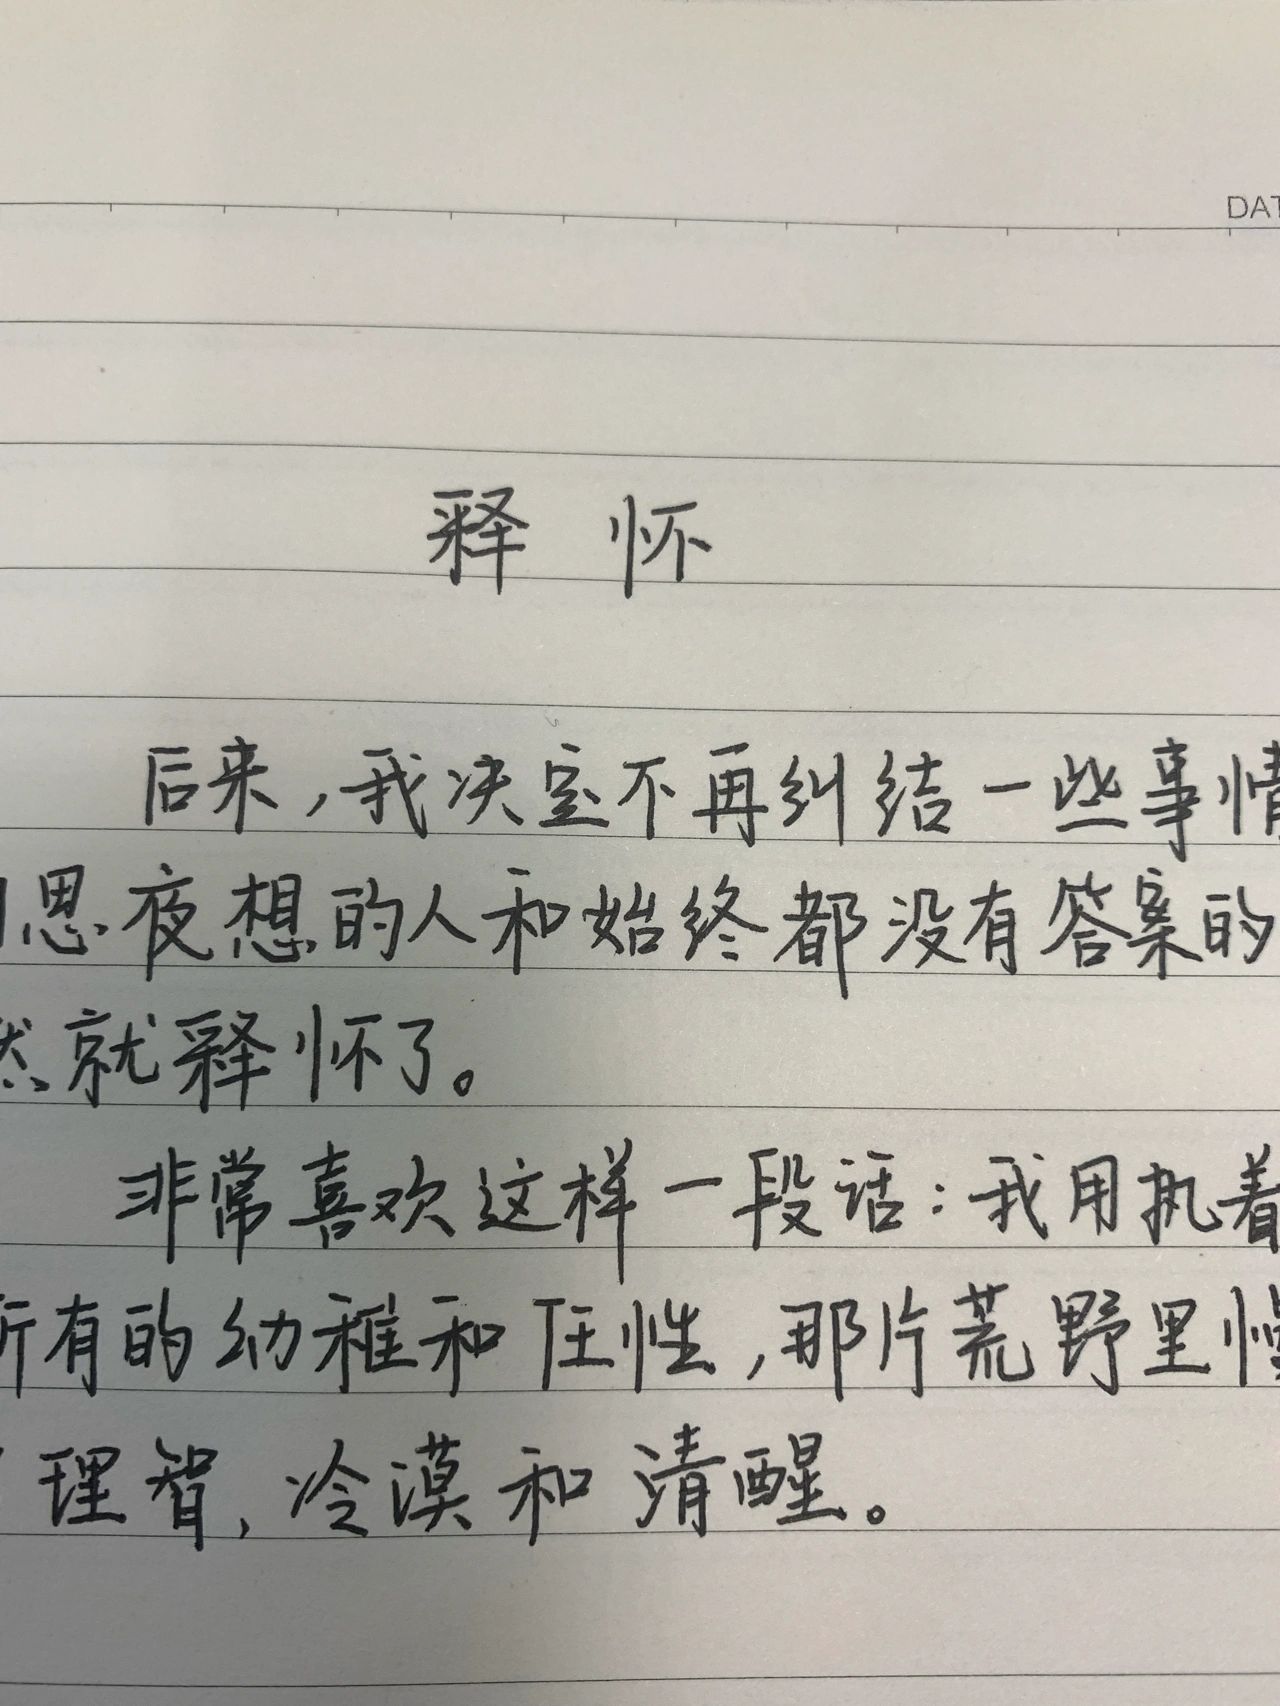 DAT
释怀
后来，我决定不再纠结一些事情
思夜想的人和始终都没有答案的
然就释怀了。
非常喜欢这样一段话：我用执着
所有的幼稚和任性，那片荒野里慢
理智，冷漠和清醒。